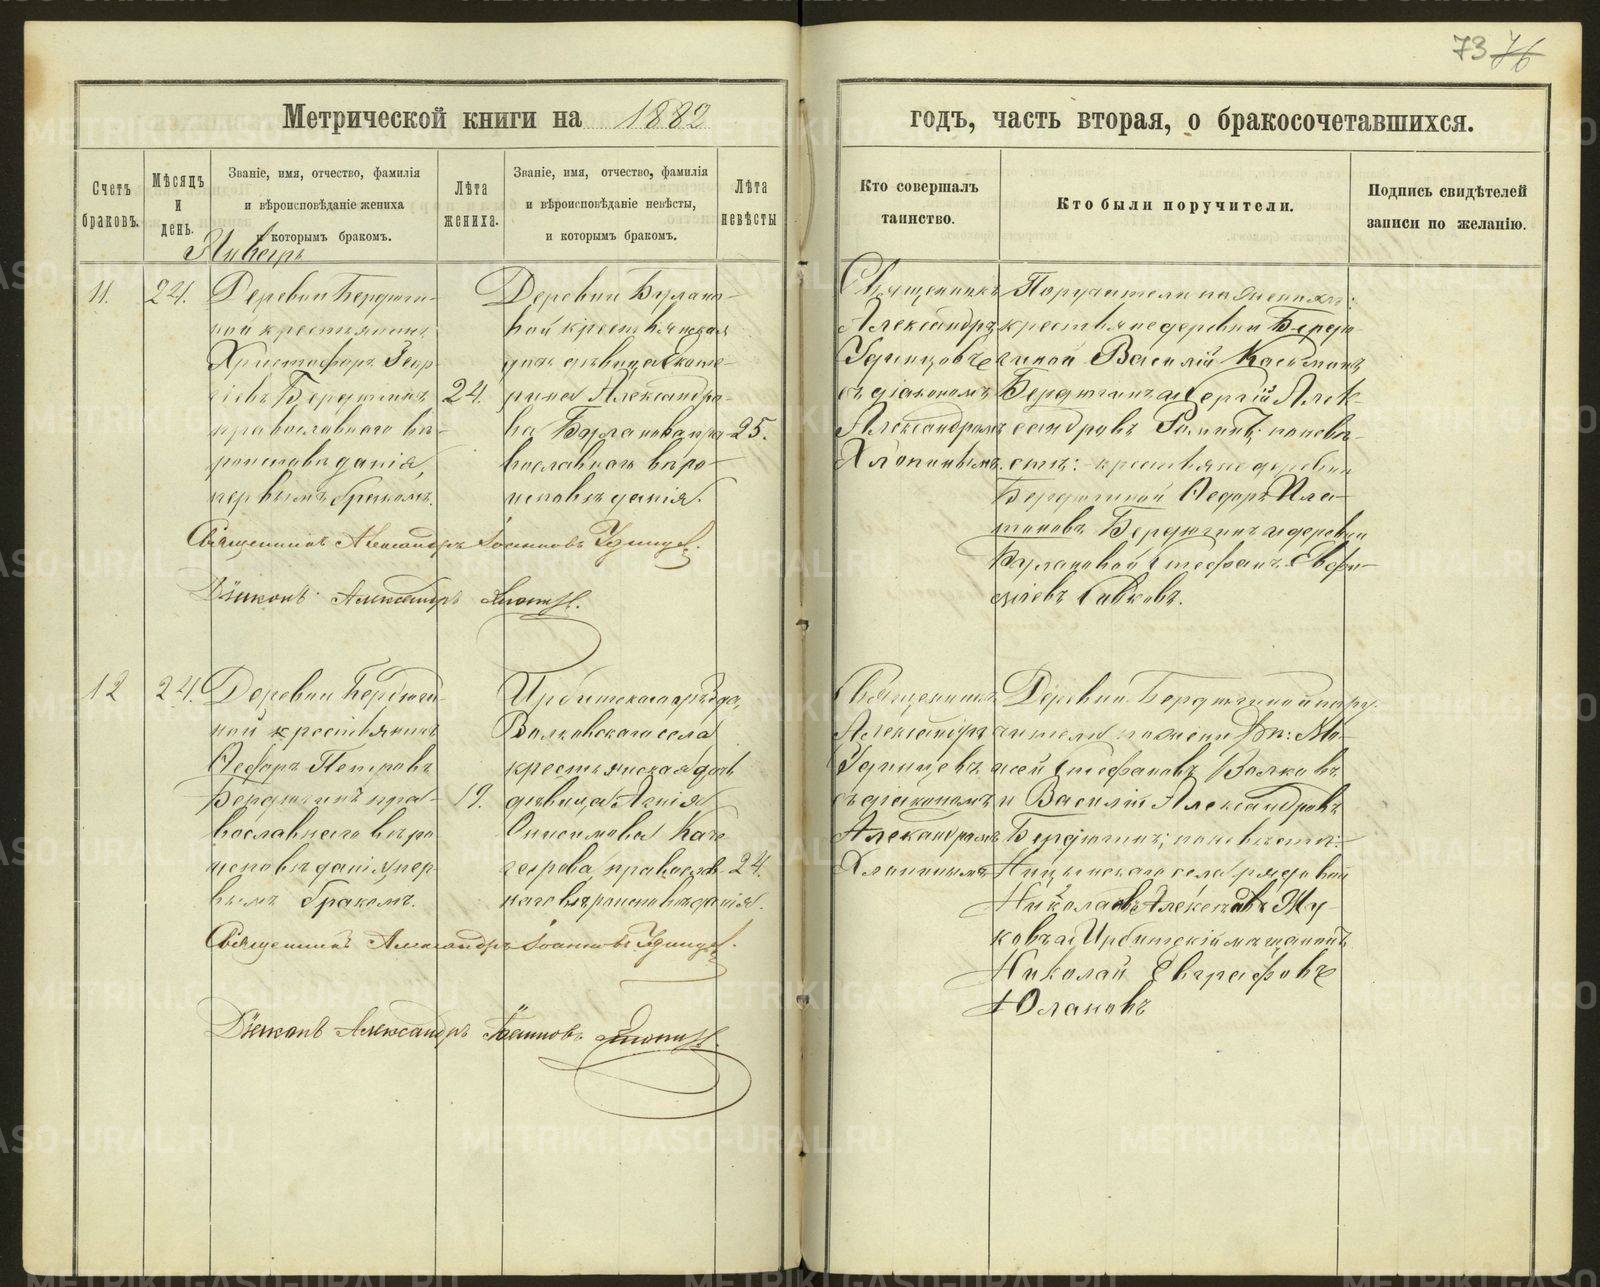 73 76
Метрической книги на 1882
годъ, часть вторая, о бракосочетавшихся.
Счетъ браковъ.
Мѣсяцъ и день.
Званіе, имя, отчество, фамилія
и вѣроисповѣданіе жениха
и которымъ бракомъ.
Лѣта жениха.
Званіе, имя, отчество, фамилія
и вѣроисповѣданіе невѣсты,
и которымъ бракомъ.
Лѣта невѣсты
Кто совершалъ
таинство.
Кто были поручители.
Подпись свидѣтелей
записи по желанію.
Январь
11.
24.
Деревни Бердюги-
ной крестьянинъ
Христофоръ Геор-
гіевъ Бердюгинъ
православнаго вѣ-
роисповѣданія,
первымъ бракомъ.
24.
Деревни Булано-
вой крестьянская
дочь дѣвица Екате-
рина Александро-
ва Буланова пра-
вославнаго вѣро-
исповѣданія.
25.
Священникъ
Александръ
Удинцовъ
съ діакономъ
Александромъ
Хлопинымъ.
Поручители по женихѣ:
крестьяне деревни Бердю-
гиной Василій Касьяновъ
Бердюгинъ и Сергій Алек-
сандровъ; по невѣ-
стѣ: крестьяне деревни
Бердюгиной Ѳедоръ Пла-
тоновъ Бердюгинъ и деревни
Булановой Стефанъ Евфи-
міевъ Савковъ.
Священникъ Александръ Іоанновъ Удинцов.
Діаконъ Александръ Хлопин.
12
24.
Деревни Бердюги-
ной крестьянинъ
Ѳедоръ Петровъ
Бердюгинъ пра-
вославнаго вѣро
исповѣданія, пер-
вымъ бракомъ.
19.
Ирбитскаго уѣзда,
Волковскаго села
крестьянская дочь
дѣвица Агнія
Онисимова
православ-
наго вѣроисповѣданія.
24.
Священникъ
Александръ
Удинцевъ
съ діакономъ
Александромъ
Хлопинымъ
Деревни Бердюгиной пору-
чители по женихѣ: Мо-
исей Стефановъ Волковъ
и Василій Александровъ
Бердюгинъ; по невѣстѣ:
Ницынскаго села рядовой
Николаевъ Алексѣевъ Жу-
ковъ и Ирбитскій мѣщанинъ
Николай Евграфовъ
Юлановъ
Священникъ Александръ Іоанновъ Удинцов.
Діаконъ Александръ Іоанновъ Хлопин.
METRIKI.GASO-URAL.RU